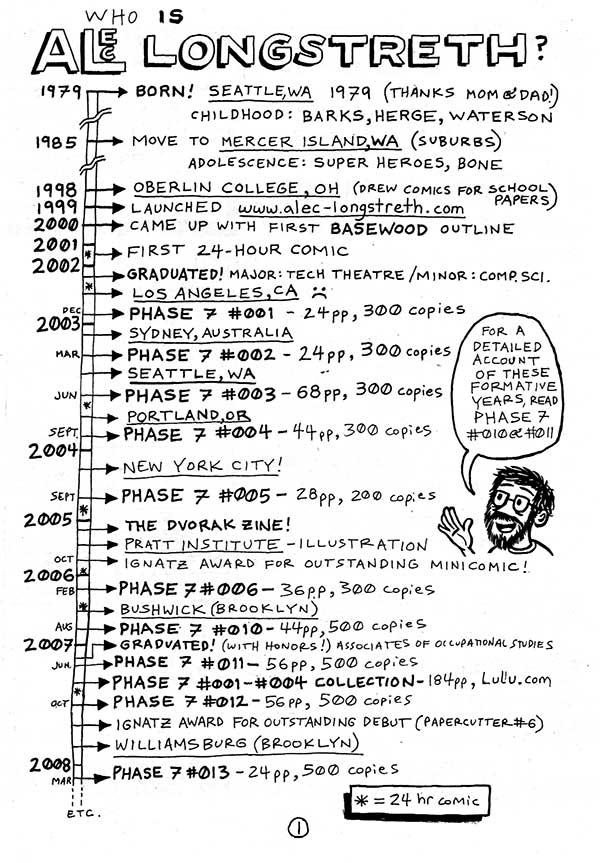 WHO IS
ALEC LONGSTRETH?
1979 BORN! SEATTLE, WA 1979 (THANKS MOM & DAD!)
CHILDHOOD: BARKS, HERGE, WATERSON
1985 MOVE TO MERCER ISLAND, WA (SUBURBS)
ADOLESCENCE: SUPER HEROES, BONE
1998 OBERLIN COLLEGE, OH (DREW COMICS FOR SCHOOL PAPERS)
1999 LAUNCHED www.alec-longstreth.com
2000 CAME UP WITH FIRST BASEWOOD OUTLINE
2001
* FIRST 24-HOUR COMIC
2002
GRADUATED! MAJOR: TECH THEATRE / MINOR: COMP. SCI.
* LOS ANGELES, CA
DEC PHASE 7 #001 - 24pp, 300 copies
2003
SYDNEY, AUSTRALIA
MAR PHASE 7 #002 - 24pp, 300 copies
SEATTLE, WA
JUN PHASE 7 #003 - 68pp, 300 copies
*
PORTLAND, OR
SEPT. PHASE 7 #004 - 44pp, 300 copies
2004
NEW YORK CITY!
SEPT PHASE 7 #005 - 28pp, 200 copies
*
2005
THE DVORAK ZINE!
PRATT INSTITUTE - ILLUSTRATION
OCT IGNATZ AWARD FOR OUTSTANDING MINICOMIC!
*
2006
FEB PHASE 7 #006 - 36pp, 300 copies
* BUSHWICK (BROOKLYN)
AUG PHASE 7 #010 - 44pp, 500 copies
2007 GRADUATED! (WITH HONORS!) ASSOCIATES OF OCCUPATIONAL STUDIES
JUN. PHASE 7 #011 - 56pp, 500 copies
* PHASE 7 #001-#004 COLLECTION - 184pp, Lulu.com
OCT PHASE 7 #012 - 56pp, 500 copies
IGNATZ AWARD FOR OUTSTANDING DEBUT (PAPERCUTTER #6)
WILLIAMSBURG (BROOKLYN)
2008
MAR PHASE 7 #013 - 24pp, 500 copies
ETC.
FOR A
DETAILED
ACCOUNT
OF THESE
FORMATIVE
YEARS, READ
PHASE 7
#010 & #011
* = 24 hr comic
1